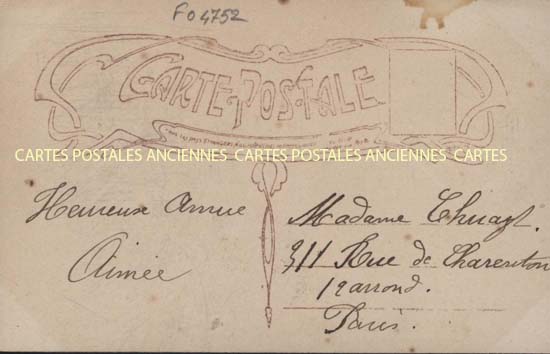 F04752
CARTE POSTALE
CARTES POSTALES ANCIENNES CARTES POSTALES ANCIENNES CARTES
Heureuse Année
Aimée
Madame
311 Rue de Charenton
12 arrond.
Paris.